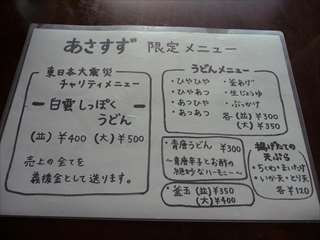 あさすず 限定メニュー
東日本大震災
チャリティメニュー
白雲しっぽく
うどん
(並)¥400 (大)¥500
売上の全てを
義援金として送ります。
うどんメニュー
・ひやひや
・ひやあつ
・あつひや
・あつあつ
・釜あげ
・生じょうゆ
・ぶっかけ
各(並)¥300
(大)¥350
・青唐うどん ¥300
〜青唐辛子とお酢の
絶妙なハーモニー〜
・釜玉 (並)¥350
(大)¥400
揚げたての
天ぷら
・ちくわ・まいたけ
・いか天・とり天
各¥120